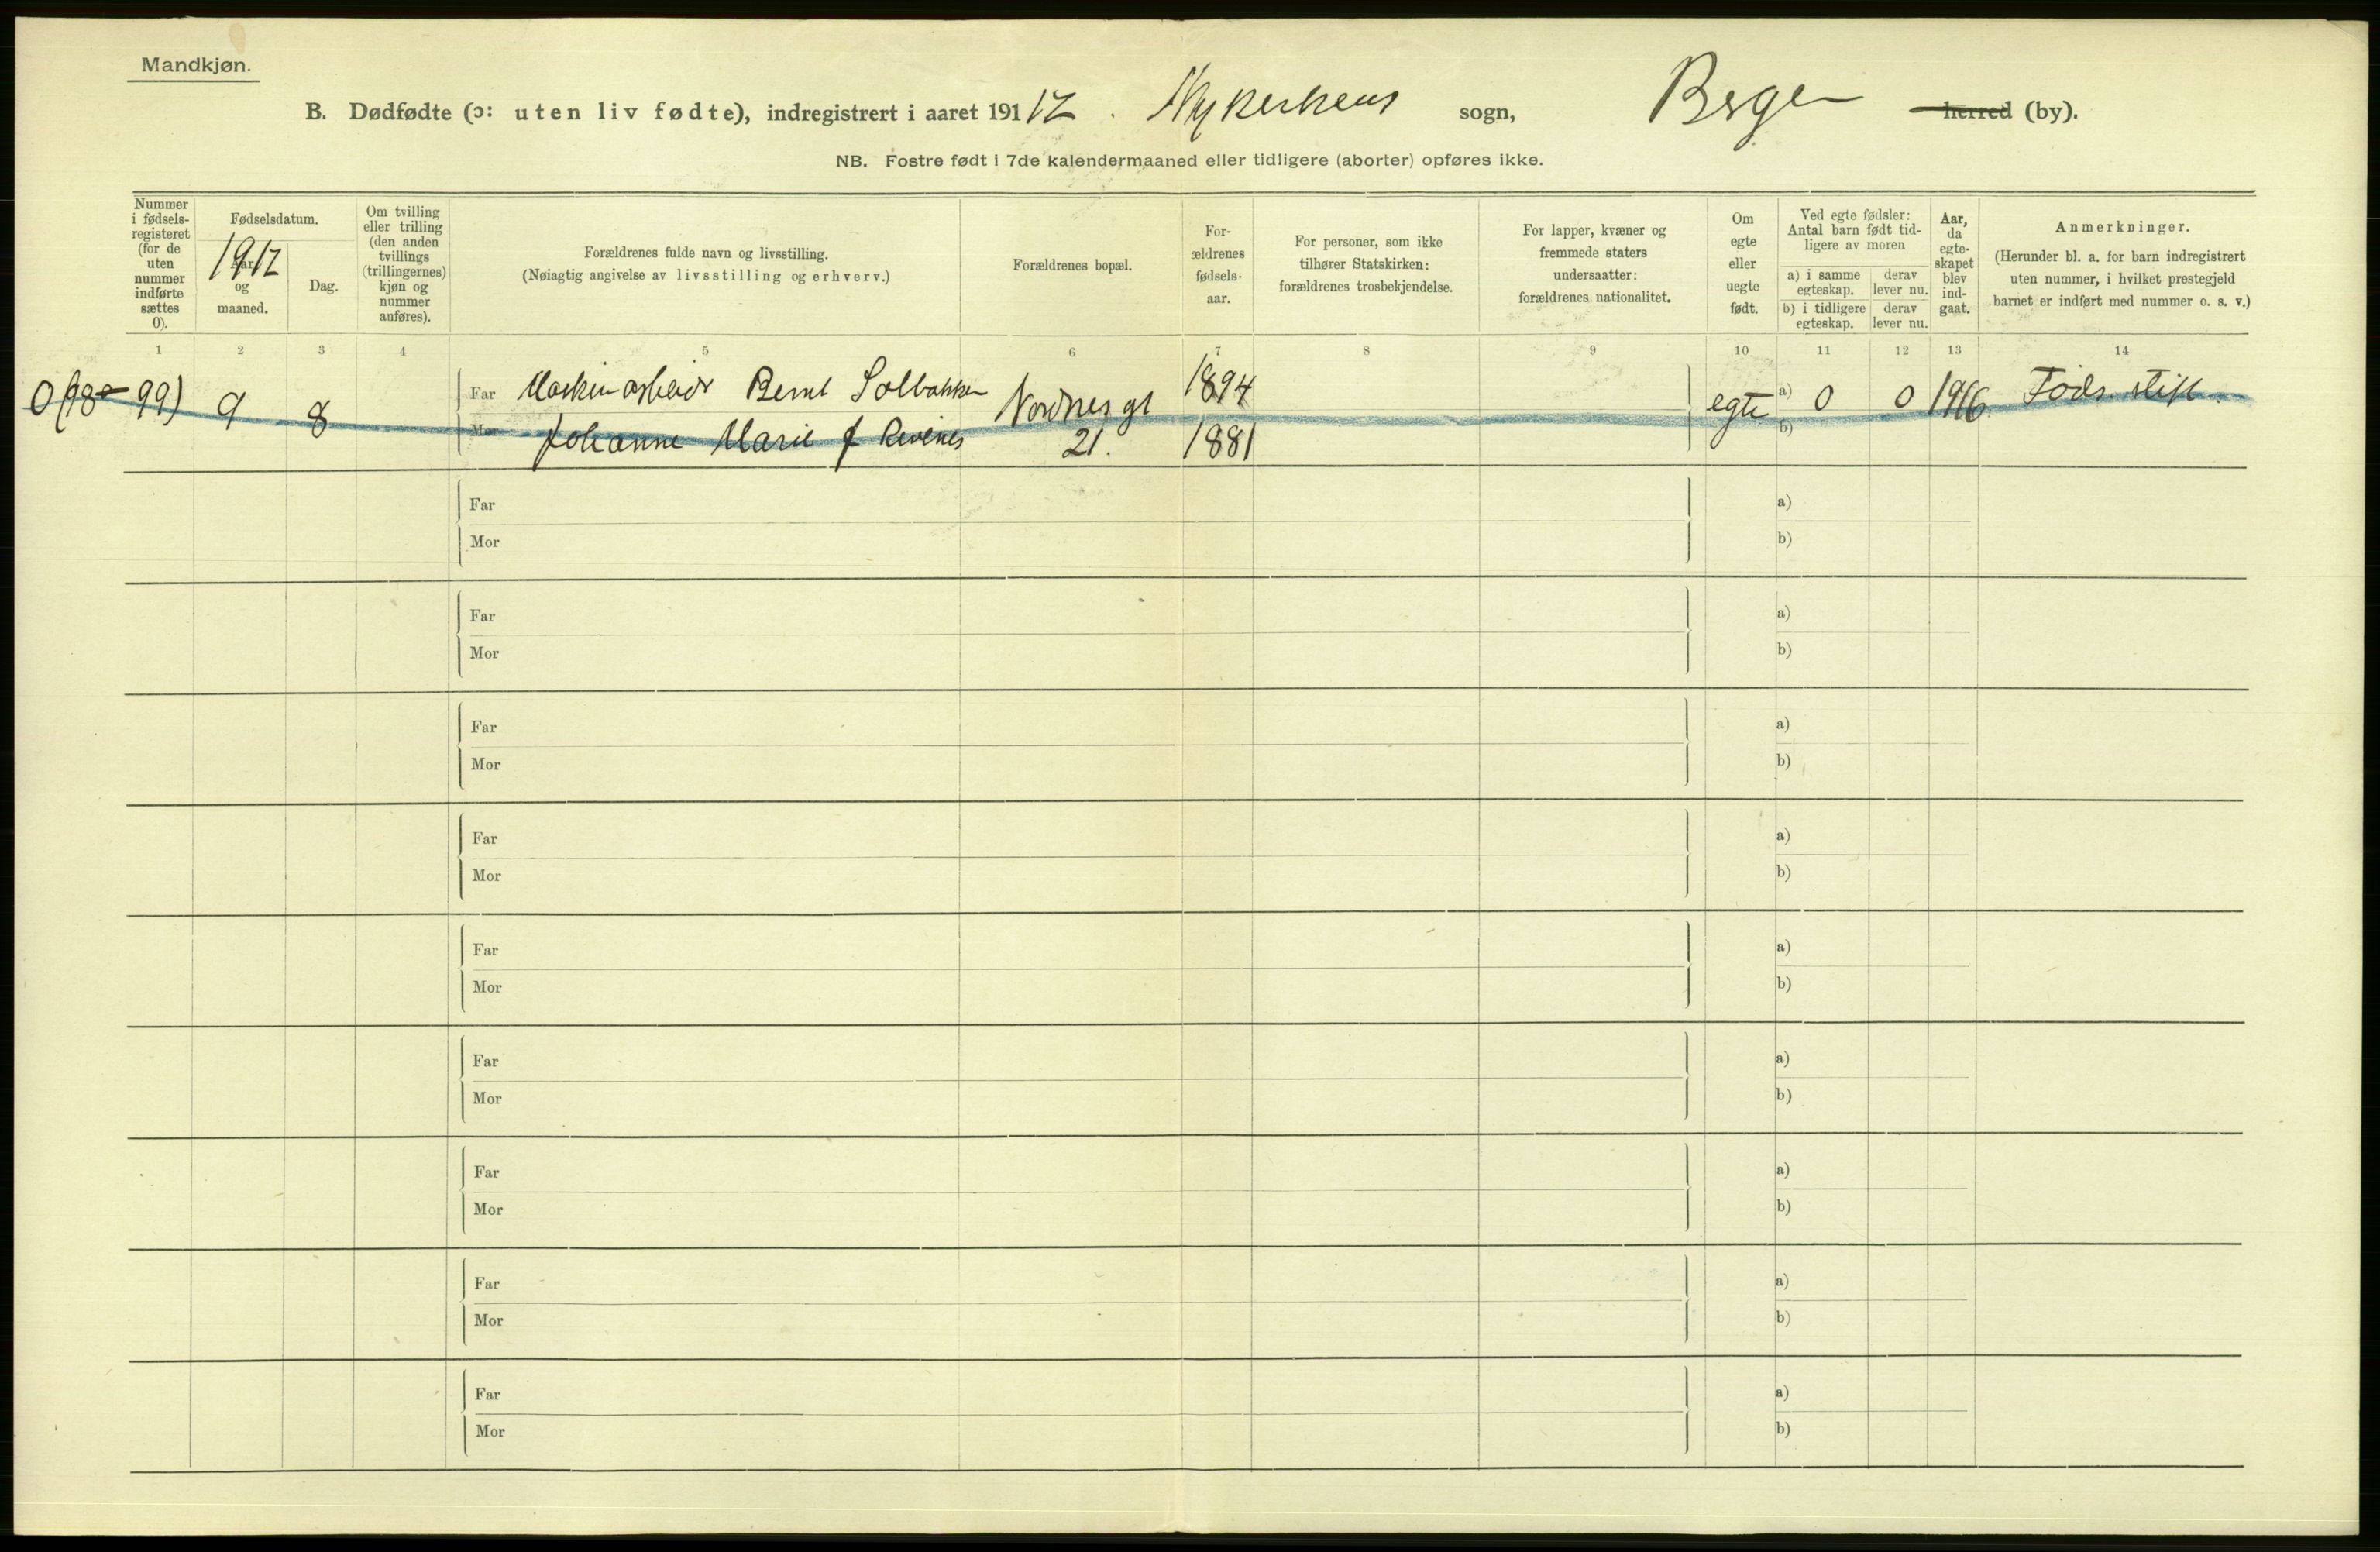 Mandkjøn.
B. Dødfødte (ɔ: uten liv fødte), indregistrert i aaret 191 17. Nykirkens sogn, Bergen herred (by).
NB. Fostre født i 7de kalendermaaned eller tidligere (aborter) opføres ikke.
Nummer i fødsels-registeret (for de uten nummer indførte sættes 0).
Fødselsdatum.
1917
Aar og maaned.
Dag.
Om tvilling eller trilling (den anden tvillings (trillingernes) kjøn og nummer anføres).
Forældrenes fulde navn og livsstilling.
(Nøiagtig angivelse av livsstilling og erhverv.)
Forældrenes bopæl.
For-ældrenes fødsels-aar.
For personer, som ikke tilhører Statskirken: forældrenes trosbekjendelse.
For lapper, kvæner og fremmede staters undersaatter: forældrenes nationalitet.
Om egte eller uegte født.
Ved egte fødsler: Antal barn født tid-ligere av moren
a) i samme egteskap.
derav lever nu.
b) i tidligere egteskap.
derav lever nu.
Aar, da egte-skapet blev ind-gaat.
Anmerkninger.
(Herunder bl. a. for barn indregistrert uten nummer, i hvilket prestegjeld barnet er indført med nummer o. s. v.)
1 2 3 4 5 6 7 8 9 10 11 12 13 14
0 (98-99) 9 8 Far Maskinarbeider Bernt Solbakken Nordnesgt 1894 egte a) 0 0 1916 Føds. stift.
Mor Johanne Marie f Revenes 21. 1881 b)
Far a)
Mor b)
Far a)
Mor b)
Far a)
Mor b)
Far a)
Mor b)
Far a)
Mor b)
Far a)
Mor b)
Far a)
Mor b)
Far a)
Mor b)
Far a)
Mor b)